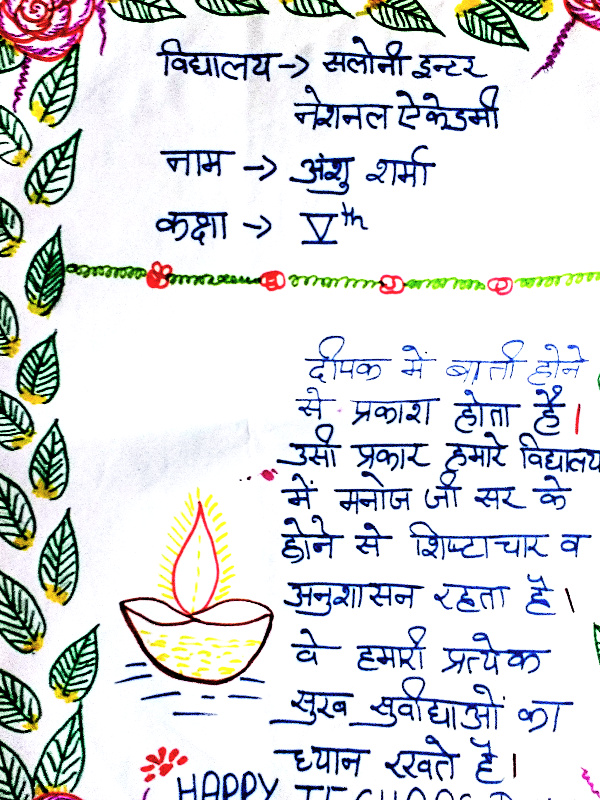 विद्यालय -> सलोनी इन्टर
नेशनल ऐकेडमी
नाम -> अंशु शर्मा
कक्षा -> Vth
दीपक में बाती होने
से प्रकाश होता है।
उसी प्रकार हमारे विद्यालय
में मनोज जी सर के
होने से शिष्टाचार व
अनुशासन रहता है।
वे हमारी प्रत्येक
सुख सुवीधाओं का
ध्यान रखते है।
HAPPY